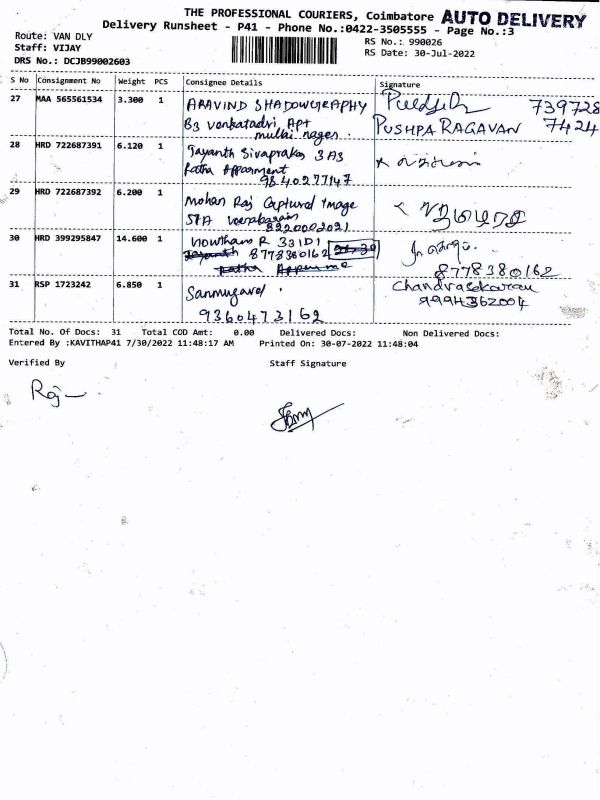 THE PROFESSIONAL COURIERS, Coimbatore AUTO DELIVERY
Delivery Runsheet - P41 - Phone No.:0422-3505555 - Page No.:3
Route: VAN DLY
Staff: VIJAY
DRS No.: DCJB99002603
RS No.: 990026
RS Date: 30-Jul-2022
S No Consignment No Weight PCS Consignee Details Signature
27 MAA 565561534 3.300 1 ARAVIND SHADOWGRAPHY 739728
B3 Venkatadri, Apt PUSHPA RAGAVAN 7424
mullai nager.
28 HRD 722687391 6.120 1 Jayanth Sivaprakas 3A3
Fatha Apparment
9840277147
29 HRD 722687392 6.200 1 Mohan Raj Captured Image
8220002021
30 HRD 399295847 14.600 1 Nowtham R 331D1
8778380162
8778380162
31 RSP 1723242 6.850 1 Sanmugavel Chandrasekaran
9360473162 9994362004
Total No. Of Docs: 31 Total COD Amt: 0.00 Delivered Docs: Non Delivered Docs:
Entered By :KAVITHAP41 7/30/2022 11:48:17 AM Printed On: 30-07-2022 11:48:04
Verified By Staff Signature